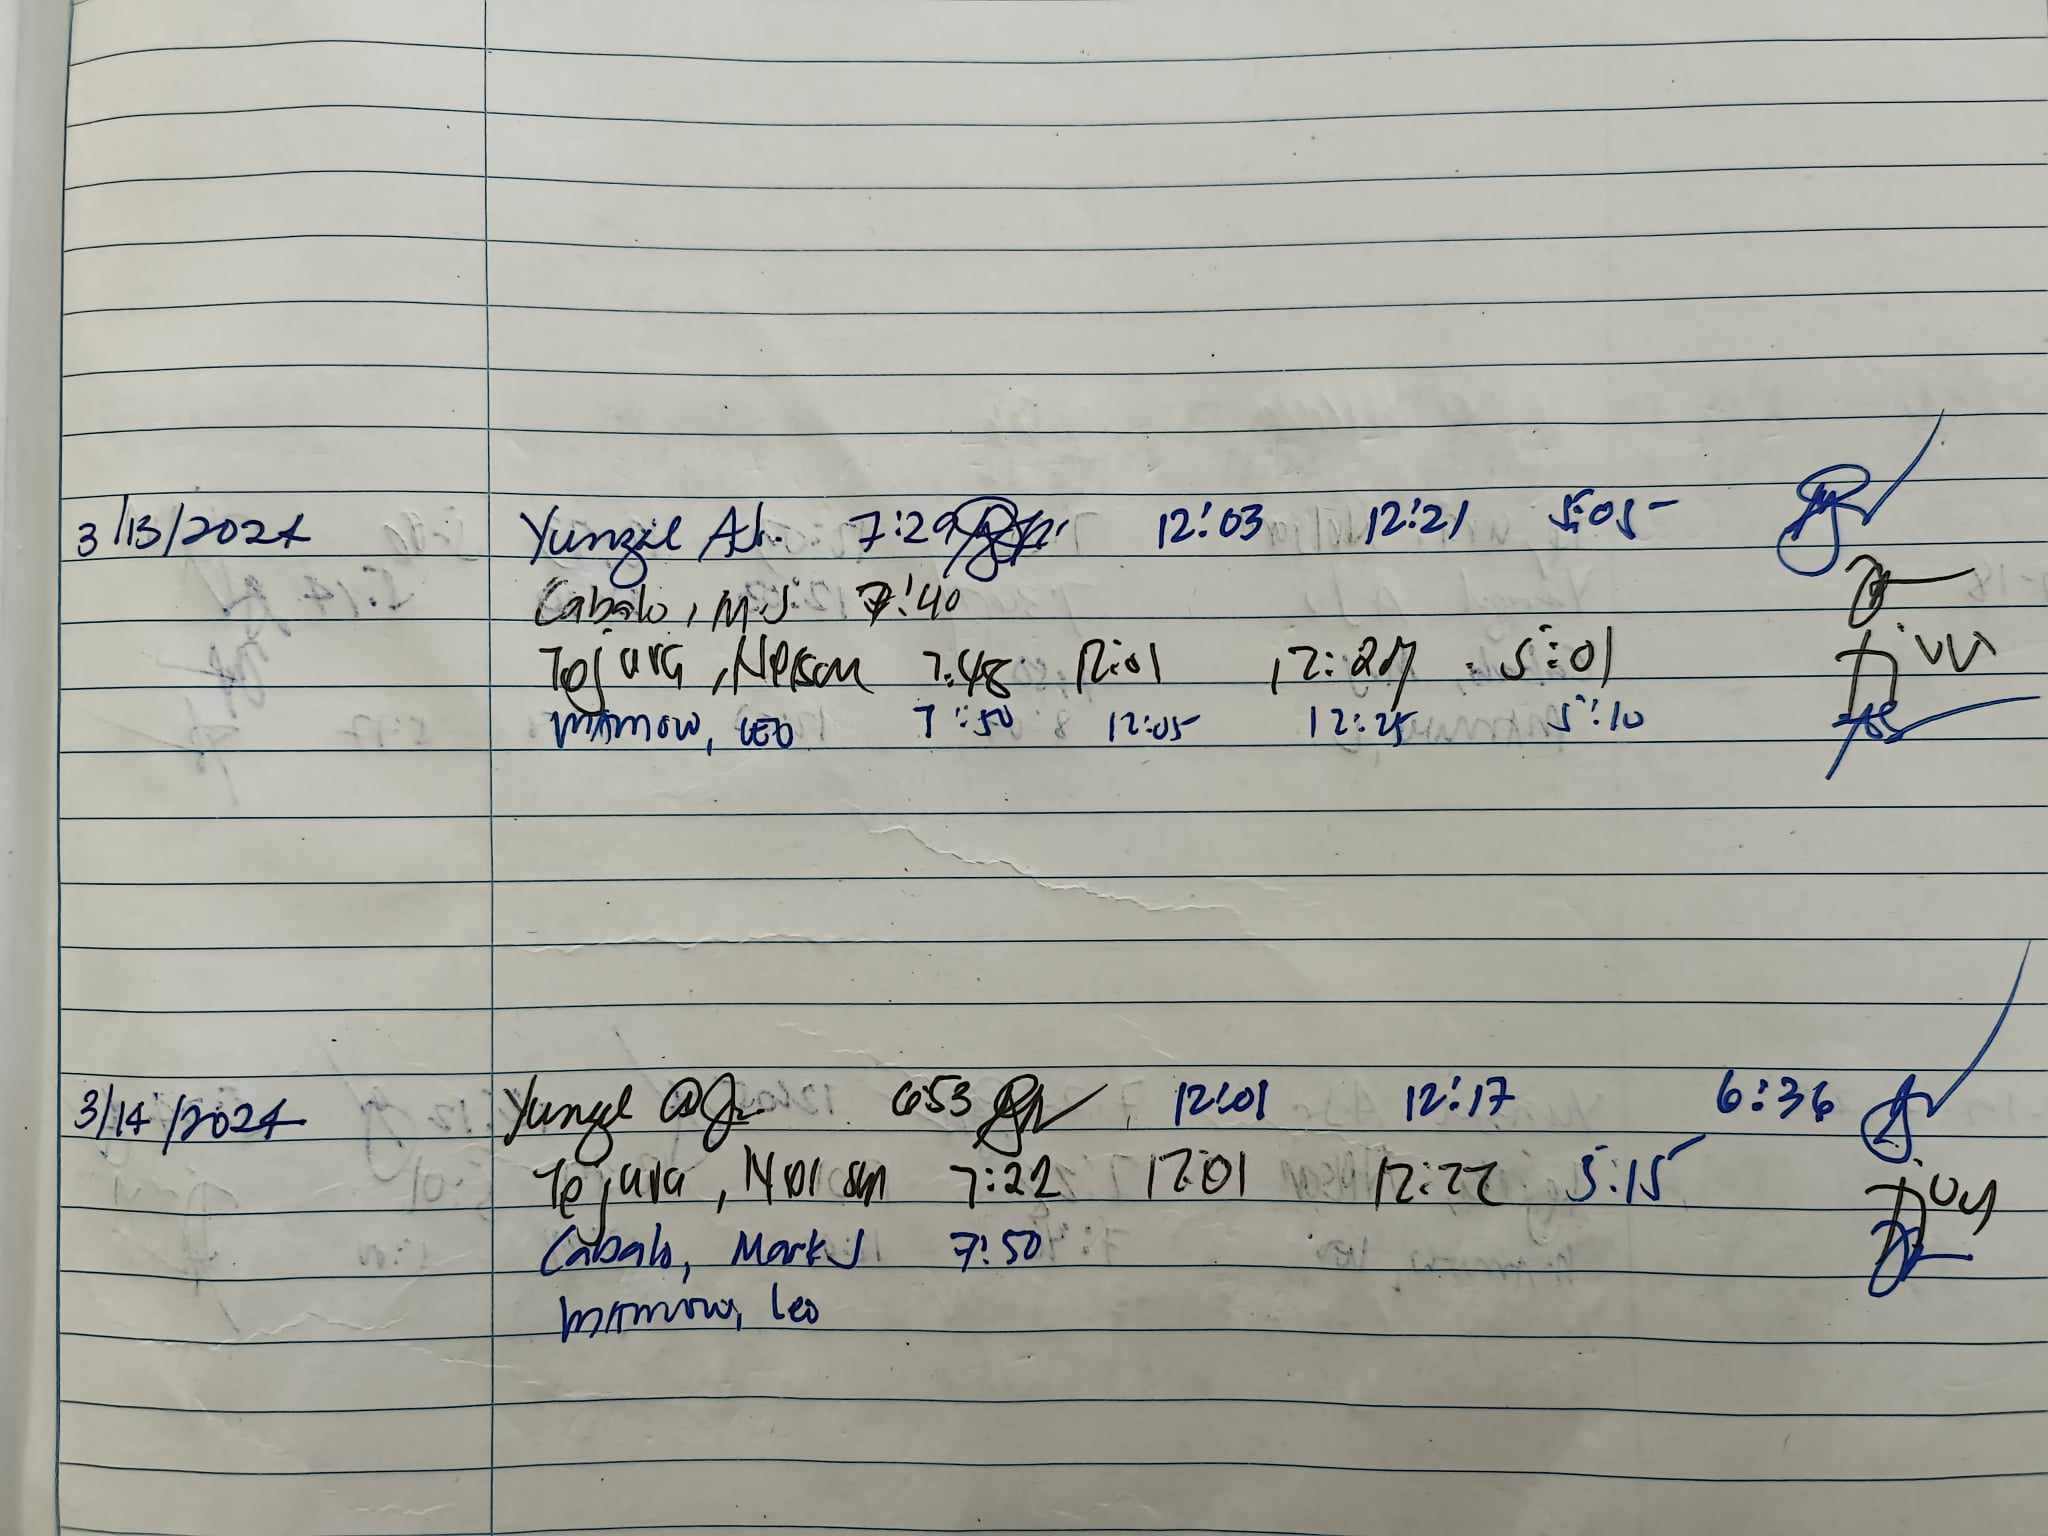 3/13/2024 Yungil AJr. 7:29 12:03 12:21 5:05
Cabalo, MJ 7:40
Tejura, Nelson 7:48 12:01 12:27 5:01
Mamow, LEO 7:50 12:05 12:25 5:10
3/14/2024 Yungil 653 12:01 12:17 6:36
Tejura, Nelson 7:22 12:01 12:22 5:15
Cabalo, Mark J 7:50
Mamow, Leo